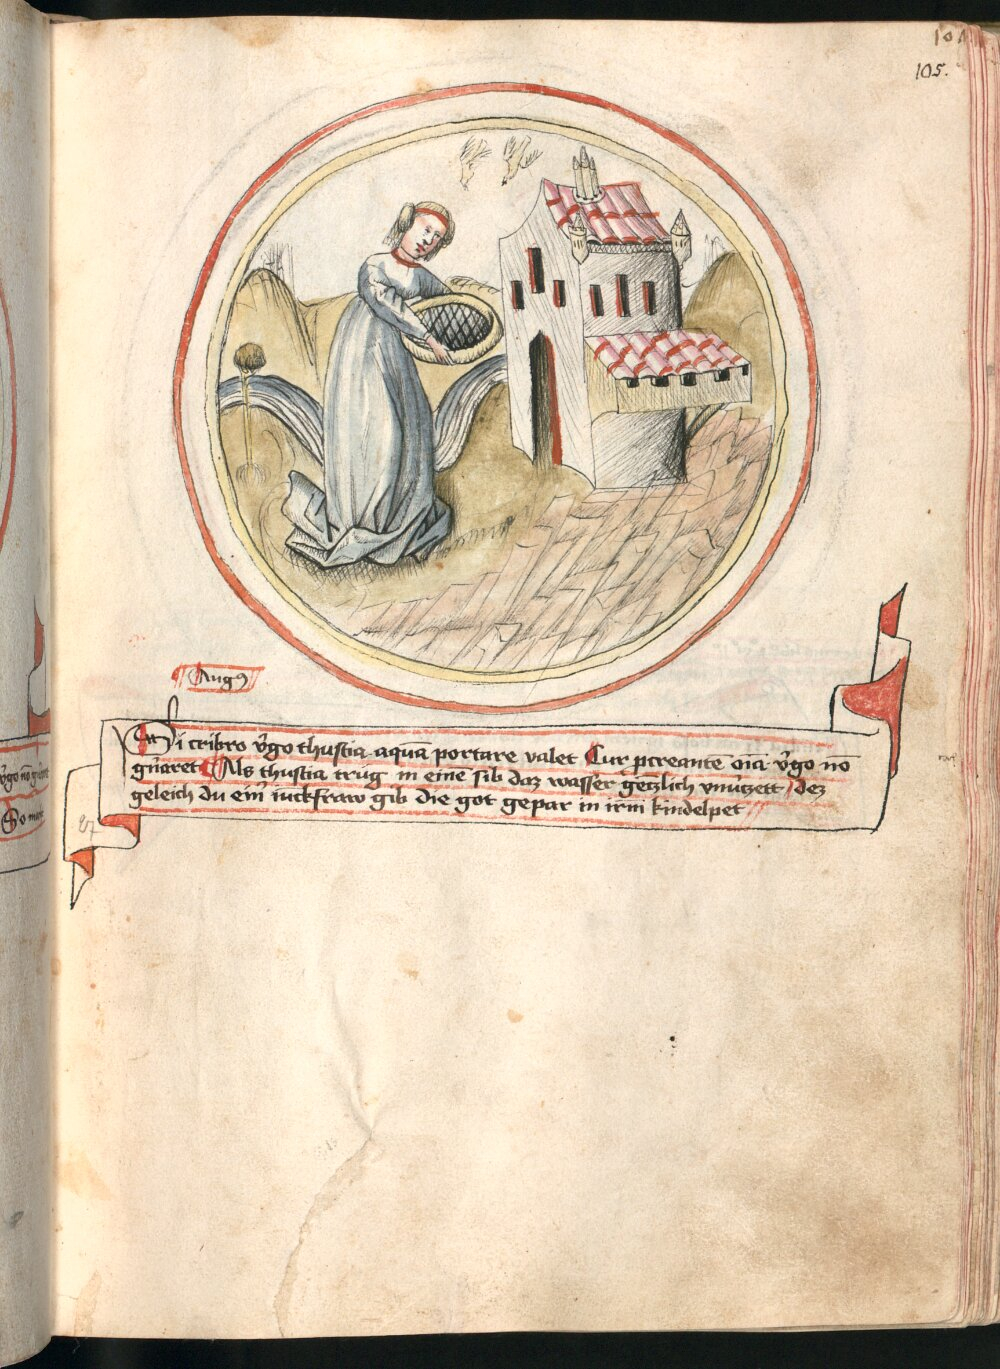 101
105.
Augꝯ
Si cribro v̄go thustia aquā portare valet Cur pcreantē oīa v̄go nō
gn̄aret Als thustia trüg in eine sib daz wasser gētzlich vnu̇tzett / dez
geleich du ein̄ iuckfraw gib die got gepar in irm kindelpet
v̄go nō
So